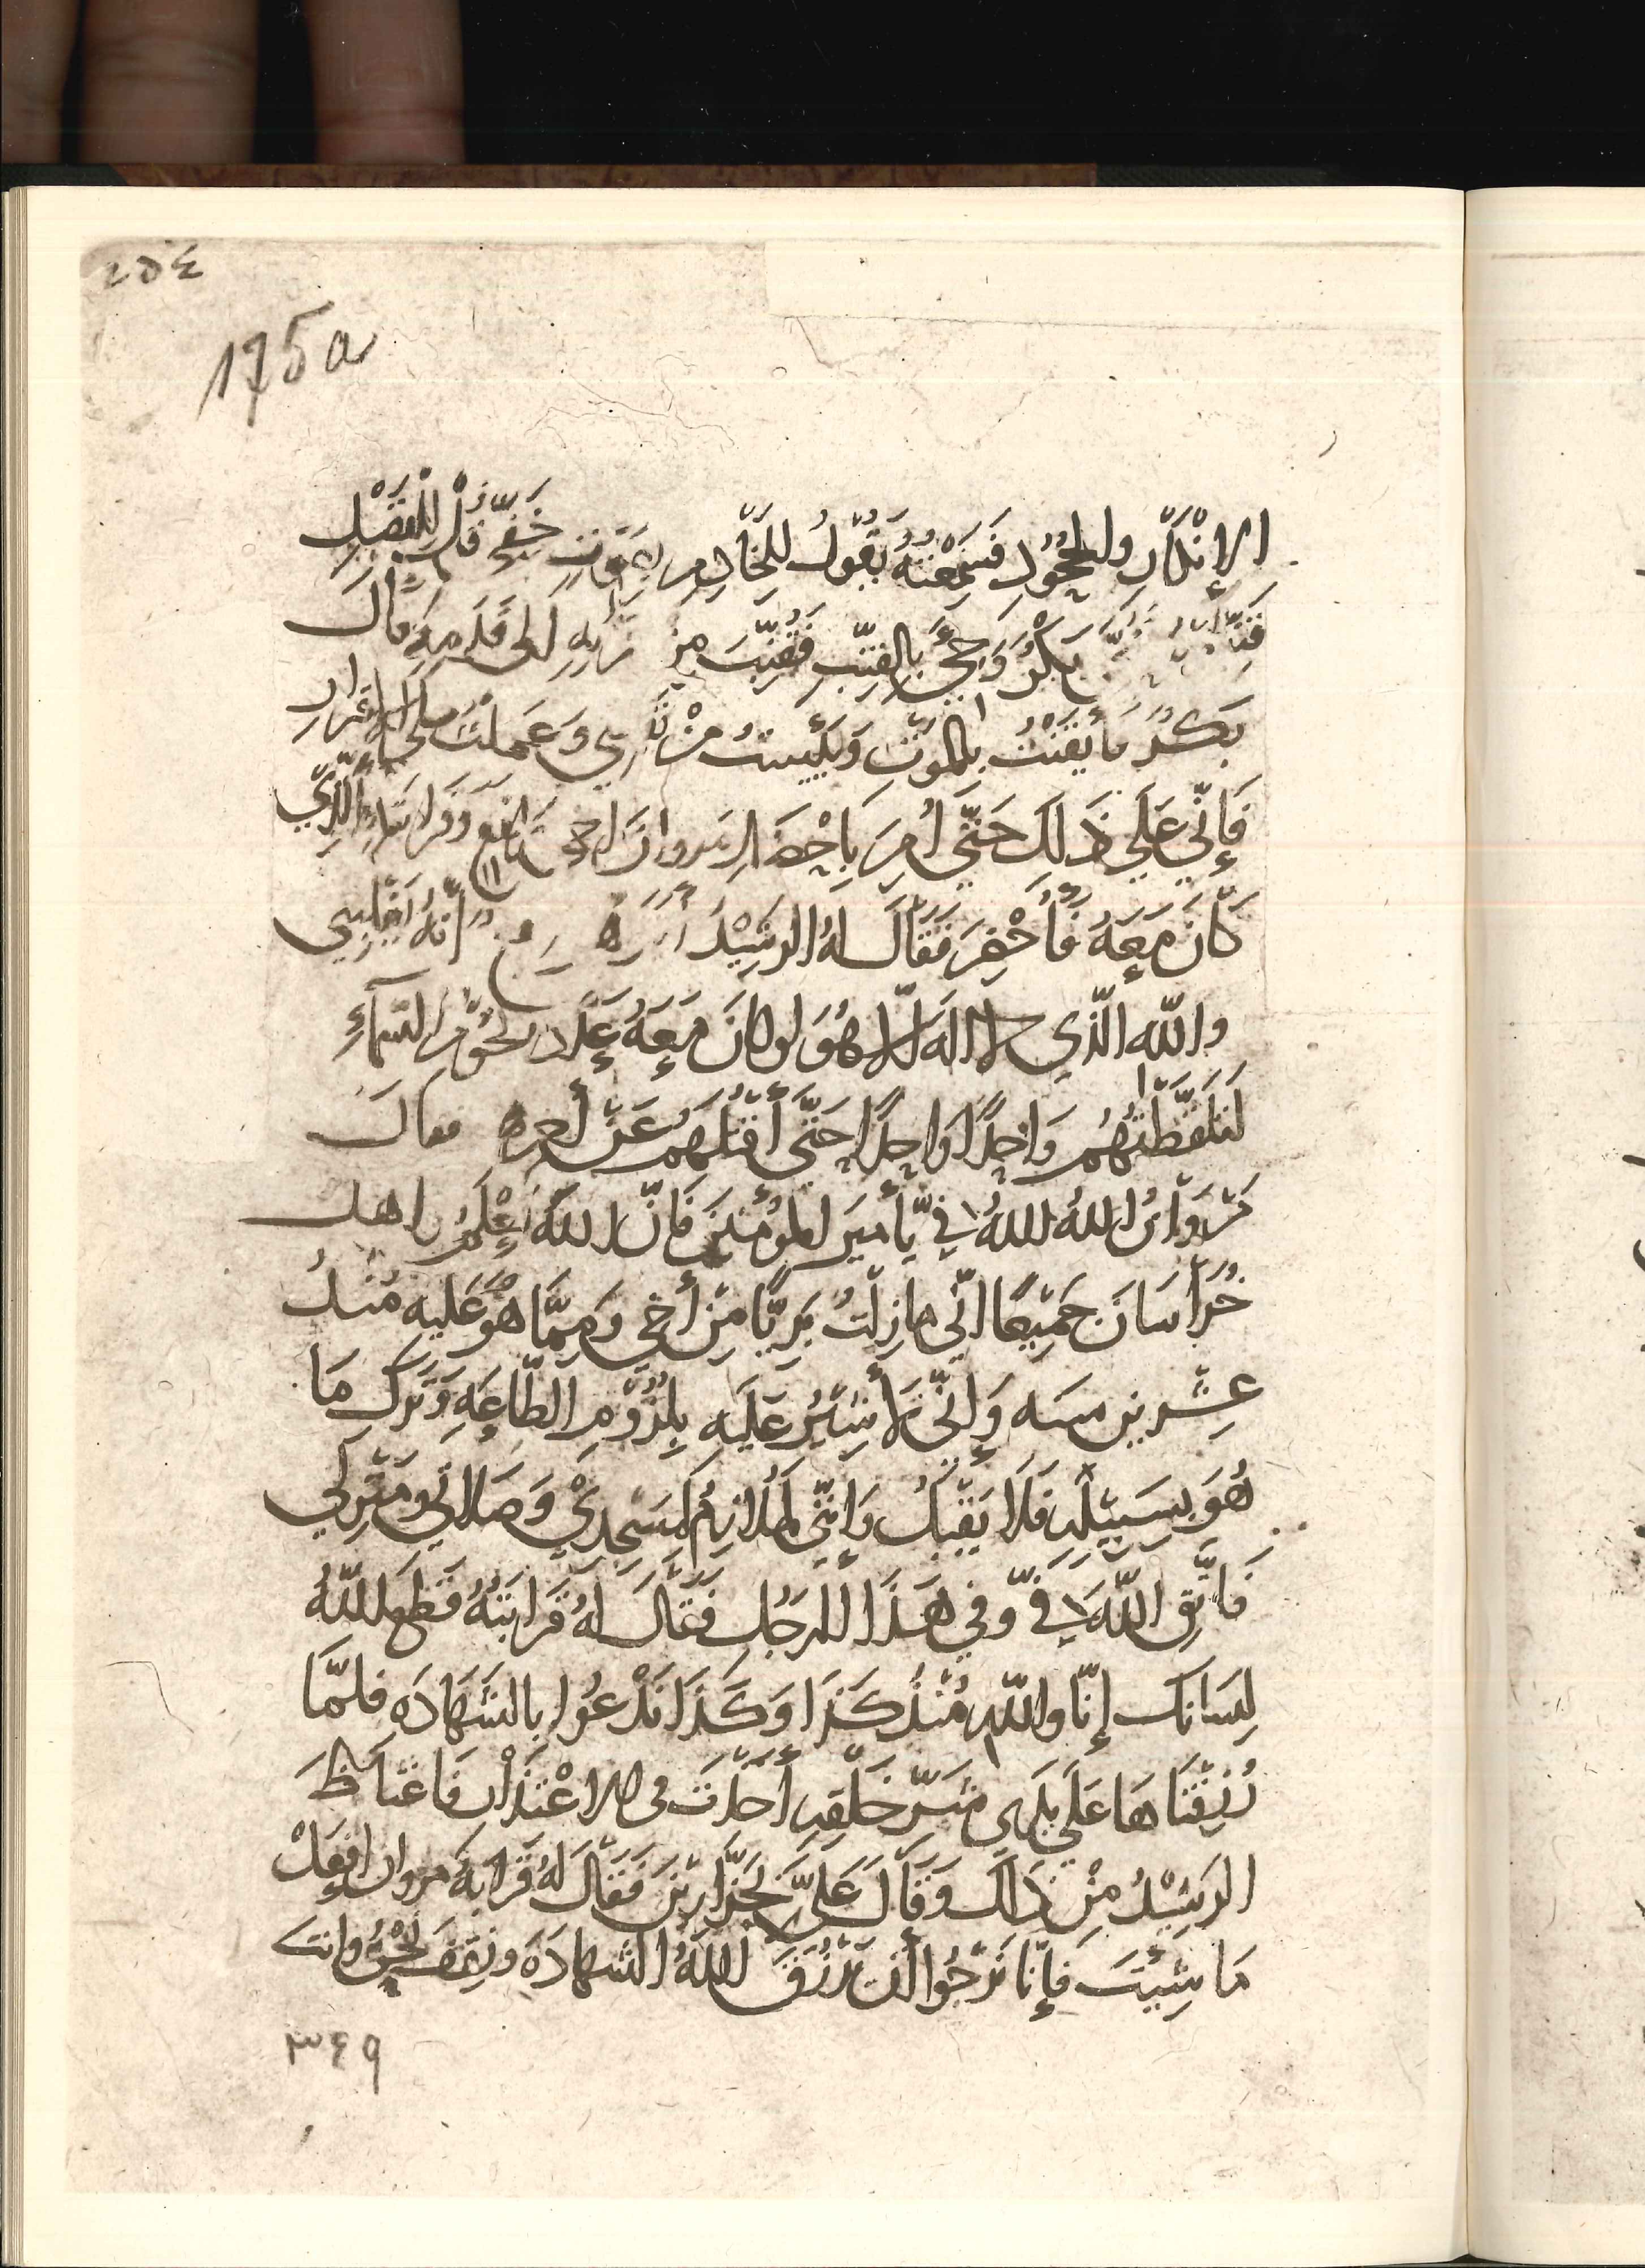 ٢٥٤
175a
الإِنْكَارِ والجُحُودِ فَسَمِعْتُهُ يَقُولُ لِلْخَادِمِ بِصَوْتٍ خَفِيّ قُلْ لِلْفَضْلِ
بَكْرٌ وَجِئَ بِالقِنَّبِ فَقُنِّبَ مِن قَرْنِهِ الى قَدَمِهِ قَالَ
بَكْرٌ فأيْقَنْتُ بِالمَوْتِ وَيَئِستُ مِنْ نَفْسِي وَعَمِلْتُ عَلَى الاقْرَارِ
فَإِنِّي عَلَى ذَلِكَ حَتَّى أَمَرَ بِإحْضَارِ مروانَ اخي رَافع وَقَرَابَتهِ الَّذِي
كَانَ مَعَهُ فَأُحْضِرَ فَقَالَ لهُ الرشِيْدُ أنّهُ يَغْلِبُنِي
واللّه الَّذِي لا الَهَ الّا هُوَ لو كانَ مَعَهُ عَدَد نُجُوْمِ السَّمآءِ
لَتَلَقَّطْتُهُم وَاحِدًا وَاحِدًا حَتَّى أقتُلَهُم عَنْ آخِرِهِم فقالَ
مَرْوَانُ اللهُ اللهُ فِيَّ يَأميرَ المُؤْمنينَ فَانَّ اللهَ يَعْلَمُ واهل
خُرَاسَانَ جَمِيْعًا انّي ما زِلْتُ بَرِيًّا مِنْ أَخِي وَمِمَّا هُوَ عَليه مُنْذُ
عِشْرينَ سنه وَإِنِّي لَأُشِيْرُ عَلَيهِ بِلُزُوْمِ الطَّاعَةِ وَتَركِ مَا
هُوَ بِسَبِيْلِهِ فَلَا يَقْبَلُ وَإِنِّي لَمُلَازِمٌ لمَسْجِدِيْ وَصَلَاتي وَمَنْزِلي
فَاتَّقِ اللّهَ فِيَّ وفي هَذَا الرجُلِ فَقَالَ لهُ قَرَابَتُهُ قَطَعَ اللّهُ
لِسَانك إِنَّا واللّهِ مُنْذُ كَذَا وَكَذَا نَدْعُوا بالشَهَادَه فلمَّا
رُزِقْنَاهَا عَلَى يَدَي شَرّ خَلْقِهِ أَخَذْتَ فى الاعْتِذَارِ فَاغْتَاظَ
الرَشِيْدُ مِنْ ذَلك وَقَالَ عَلَيَّ بِجَزَّارِيْنَ فَقَالَ لهُ قَرَابَةُ مروان افعَلْ
مَا شِئْتَ فإنَّا نَرْجُوا أَنْ يَرْزُقَنَا اللهُ الشهادَة ونقف نَحْنُ وانت
٣٤٩